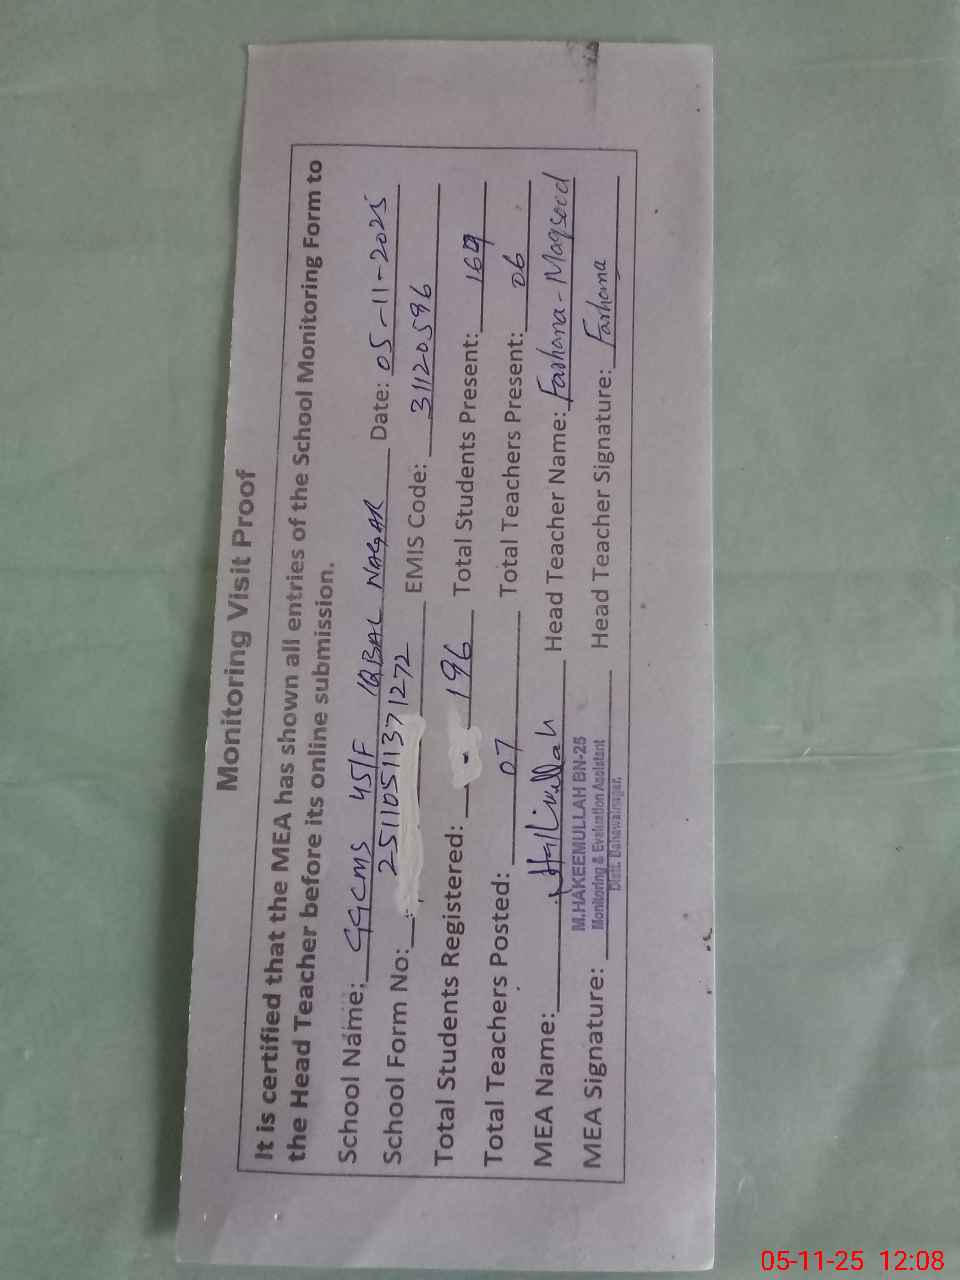 Monitoring Visit Proof
It is certified that the MEA has shown all entries of the School Monitoring Form to
the Head Teacher before its online submission.
School Name: GGCMS 45/F IQBAL NAGAR Date: 05-11-2025
School Form No: 2511051371272 EMIS Code: 31120596
Total Students Registered: 196 Total Students Present: 169
Total Teachers Posted: 07 Total Teachers Present: 06
MEA Name: Head Teacher Name: Farhana-Maqsood
M.HAKEEMULLAH BN-25
MEA Signature: Monitoring & Evaluation Assistant Head Teacher Signature: Farhana
Distt. Bahawalnagar.
05-11-25 12:08